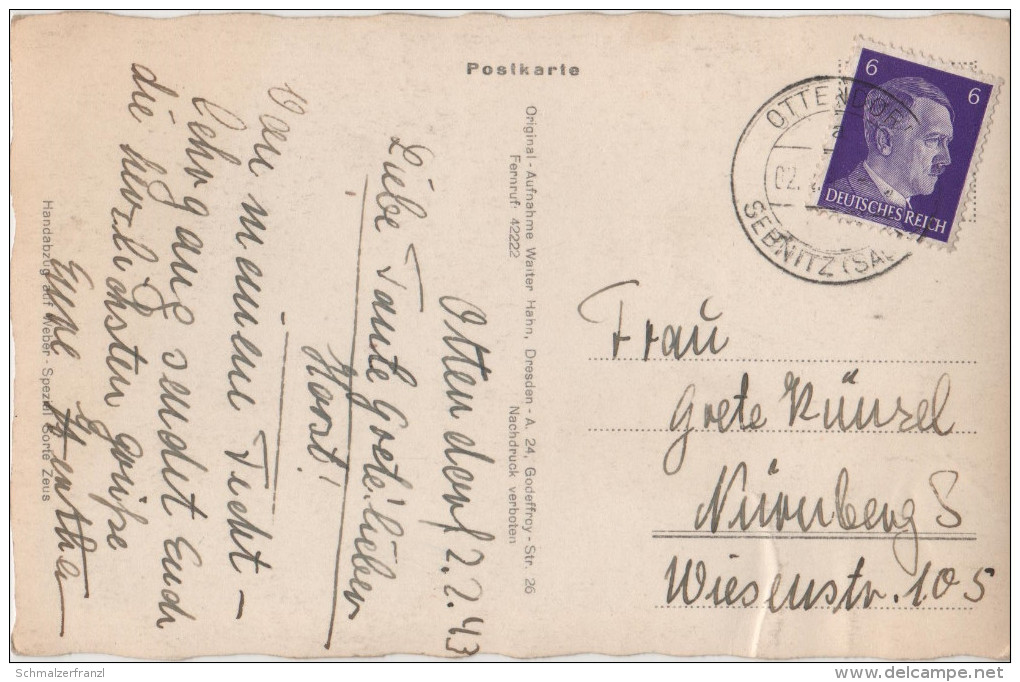 Postkarte
6 6
DEUTSCHES REICH
OTTENDORF
SEBNITZ (SA
02.
Ottendorf 2.2.43
Liebe Tante Grete! lieber
Horst!
Von meinem Ficht-
Lehrgang sendet Euch
die herzlichsten Grüße
Eure
Original - Aufnahme Walter Hahn, Dresden - A. 24, Godeffroy - Str. 26
Fernruf: 42222 Nachdruck verboten
Handabzug auf Weber - Spezial Sorte Zeus
Frau
Grete Künzel
Nürnberg S
Wiesenstr. 105
Schmalzerfranzl
delcampe.net